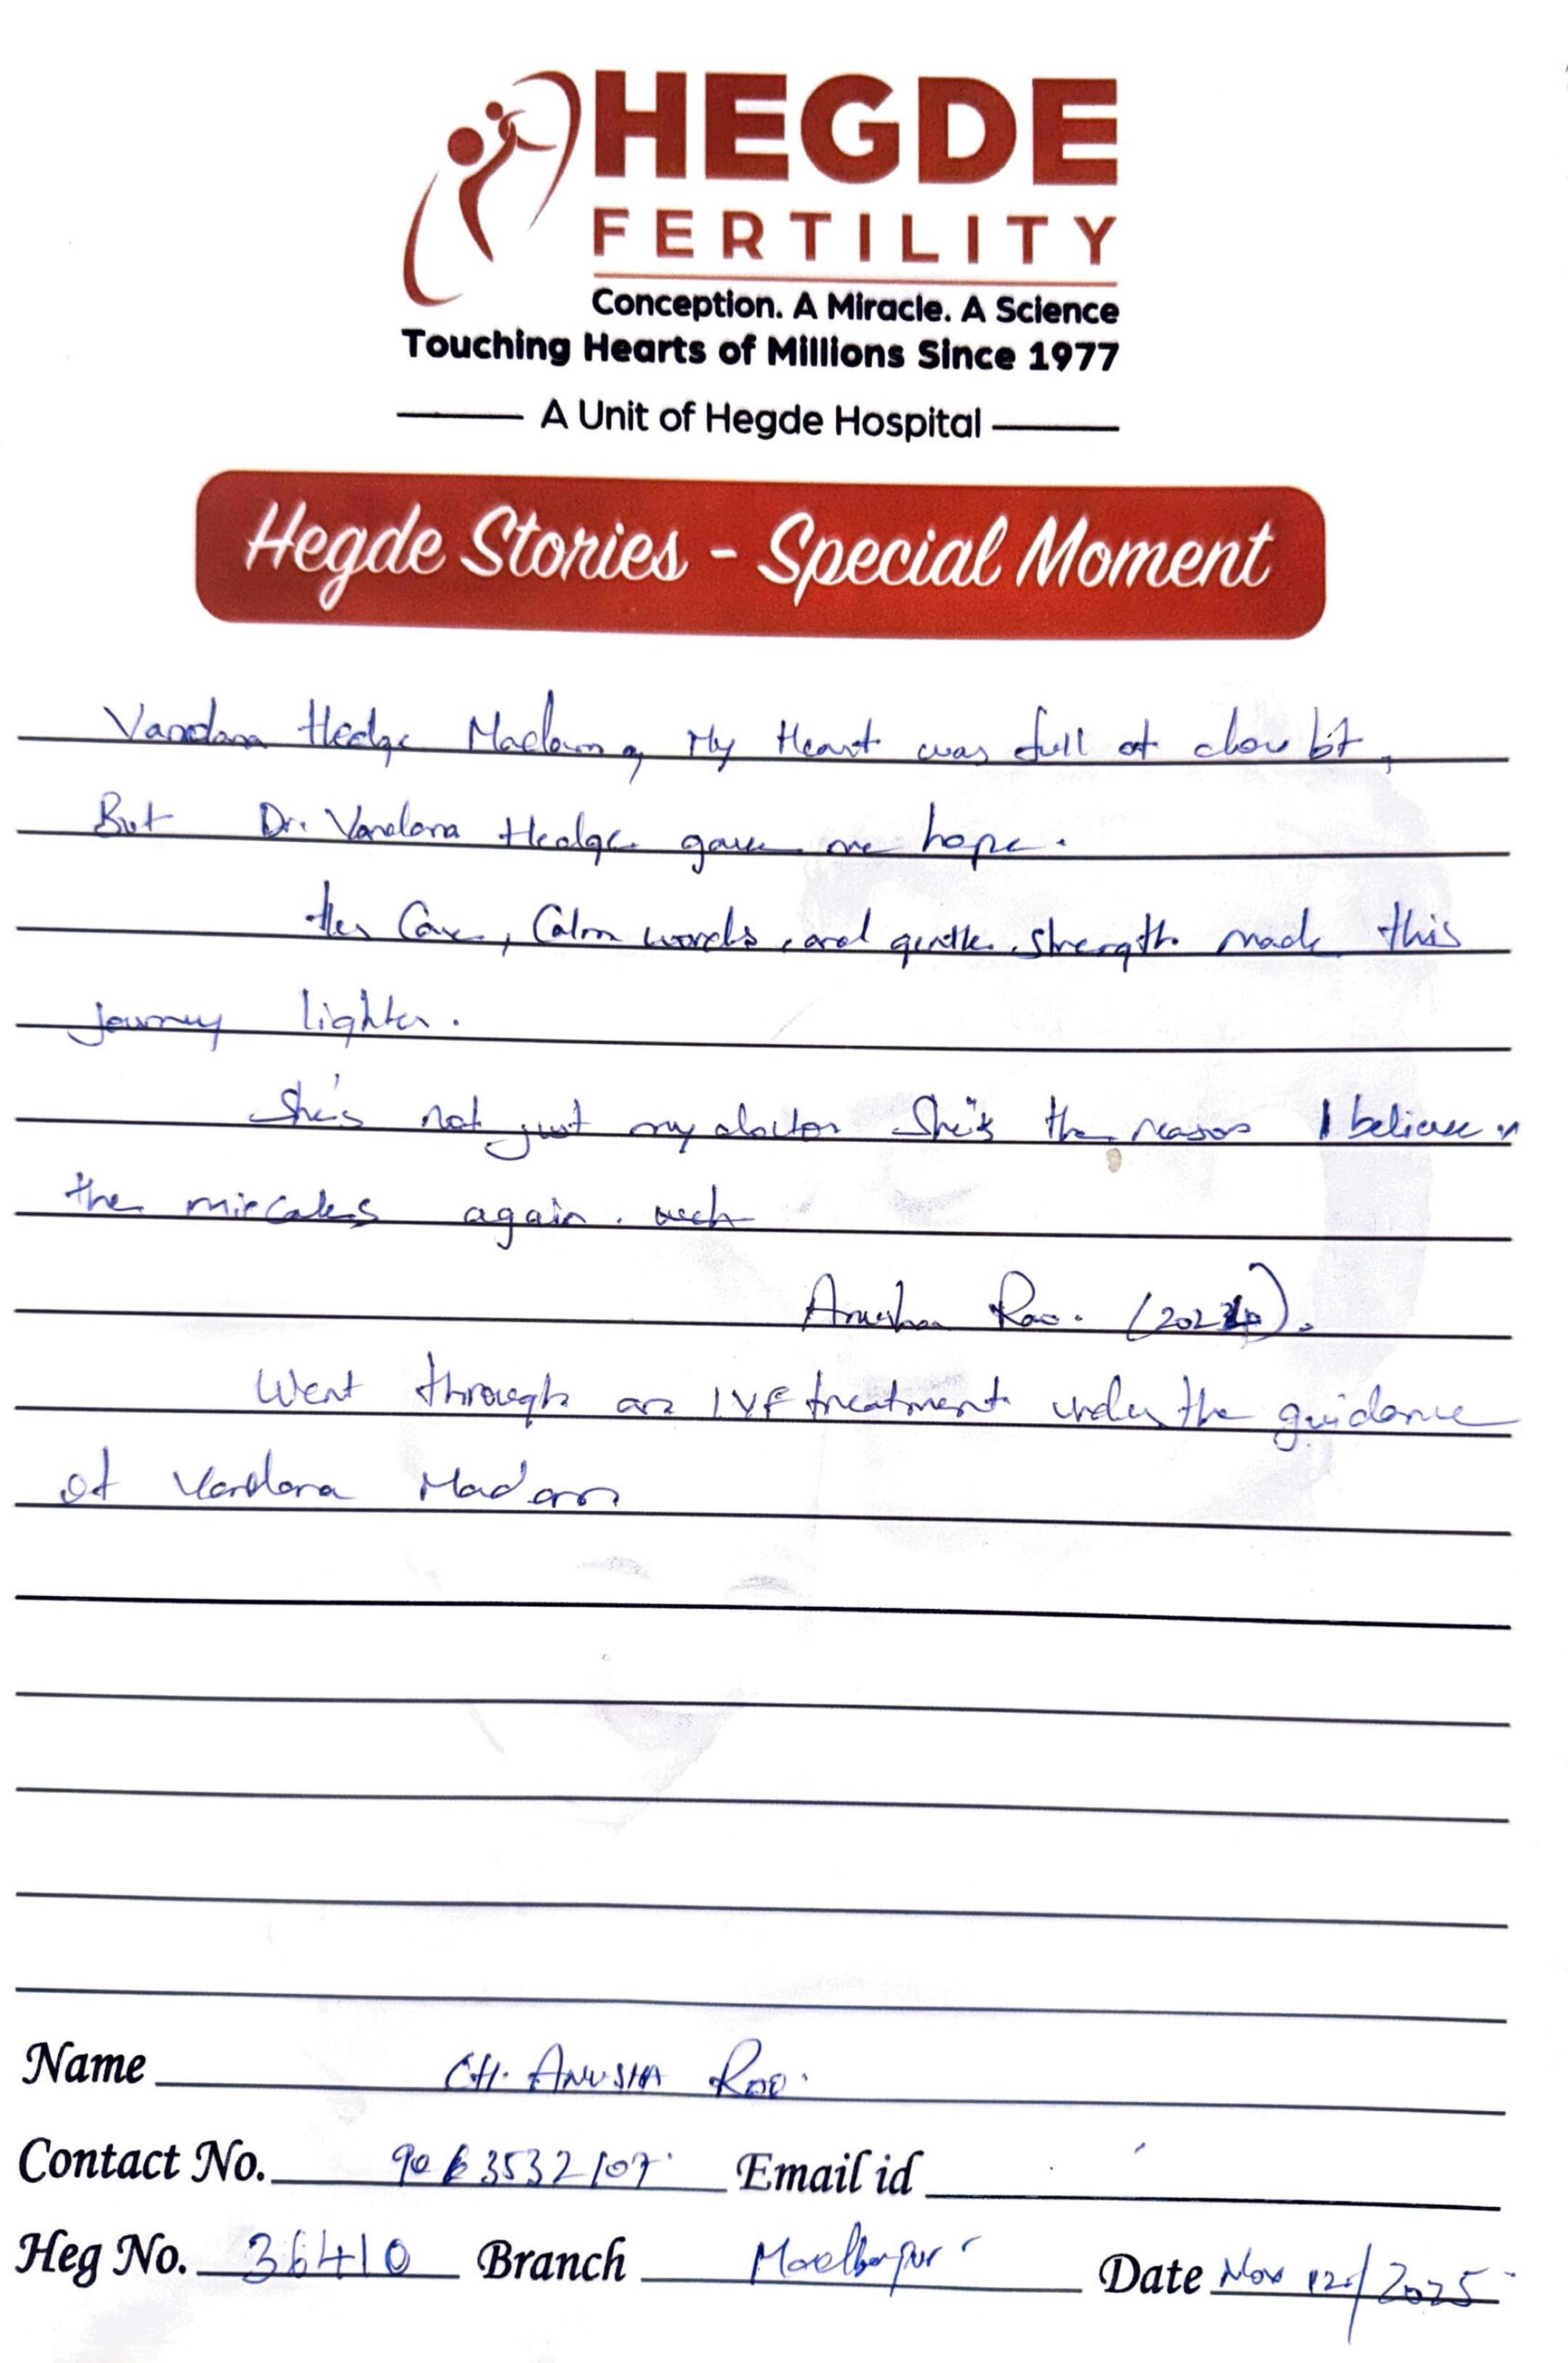 HEGDE
FERTILITY
Conception. A Miracle. A Science
Touching Hearts of Millions Since 1977
A Unit of Hegde Hospital
Hegde Stories - Special Moment
Vandana Hedge Madam, My Heart was full of doubt,
But Dr. Vandana Hedge gave me hope.
Her Care, Calm words, and gentle strength made this
journey lighter.
She's not just my doctor She's the reason I believe in
the mircales again.
Anusha Rao. (2024).
Went through an IVF treatment under the guidance
of Vandana Madam
Name CH. ANUSHA Rao.
Contact No. 9063532107 Email id
Heg No. 36410 Branch Madhapur
Date Nov 12/2025